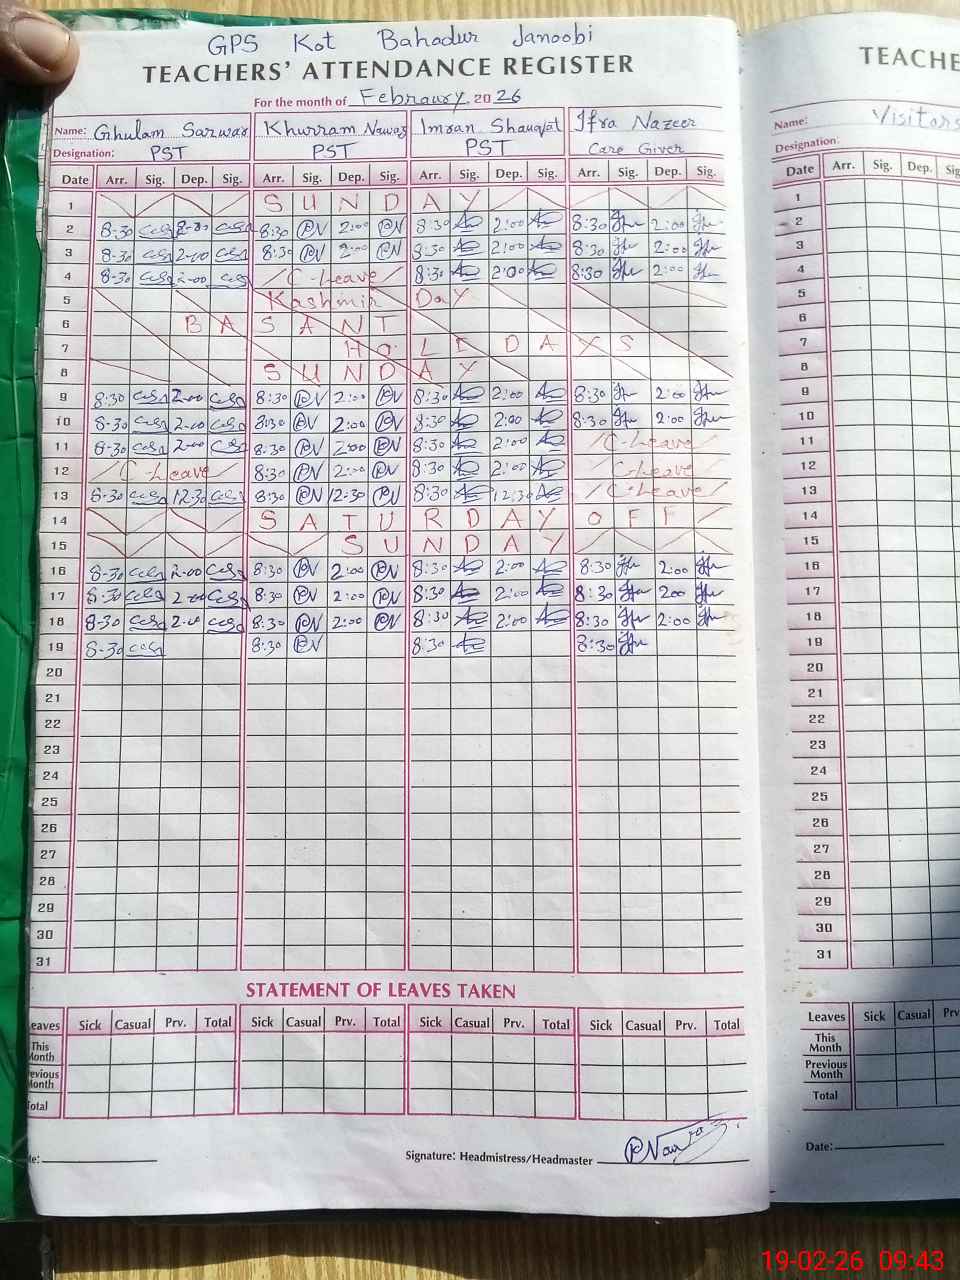 GPS Kot Bahadur Janoobi
TEACHERS' ATTENDANCE REGISTER
For the month of Febraury, 2026
Name: Ghulam Sarwar Khurram Nawaz Imran Shauqat Ifra Nazeer
Designation: PST PST PST Care Giver
Date Arr. Sig. Dep. Sig. Arr. Sig. Dep. Sig. Arr. Sig. Dep. Sig. Arr. Sig. Dep. Sig.
1 SUNDAY
2 8-30 8:30 PN 2:00 PN 8:30 2:00 8:30 2:00
3 8-30 2-00 8:30 PN 2:00 PN 8:30 2:00 8:30 2:00
4 8-30 2-00 C-Leave 8:30 2:00 8:30 2:00
5 Kashmir Day
6 BASANT
7 HOLIDAYS
8 SUNDAY
9 8:30 2-00 8:30 PN 2:00 PN 8:30 2:00 8:30 2:00
10 8-30 2-00 8:30 PN 2:00 PN 8:30 2:00 8:30 2:00
11 8-30 2-00 8:30 PN 2:00 PN 8:30 2:00 C-Leave
12 C-Leave 8:30 PN 2:00 PN 8:30 2:00 C-Leave
13 8-30 12-30 8:30 PN 12-30 PN 8:30 12:30 C-Leave
14 SATURDAY OFF
15 SUNDAY
16 8-30 2-00 8:30 PN 2:00 PN 8:30 2:00 8:30 2:00
17 8-30 2-00 8:30 PN 2:00 PN 8:30 2:00 8:30 200
18 8-30 2-00 8:30 PN 2:00 PN 8:30 2:00 8:30 2:00
19 8-30 8:30 PN 8:30 8:30
20
21
22
23
24
25
26
27
28
29
30
31
STATEMENT OF LEAVES TAKEN
eaves Sick Casual Prv. Total Sick Casual Prv. Total Sick Casual Prv. Total Sick Casual Prv. Total
This Month
revious Month
Total
te: Signature: Headmistress/Headmaster PNawaz
TEACHE
Name: Visitors
Designation:
Date Arr. Sig. Dep. Sig
1
2
3
4
5
6
7
8
9
10
11
12
13
14
15
16
17
18
19
20
21
22
23
24
25
26
27
28
29
30
31
Leaves Sick Casual Prv
This Month
Previous Month
Total
Date:
19-02-26 09:43